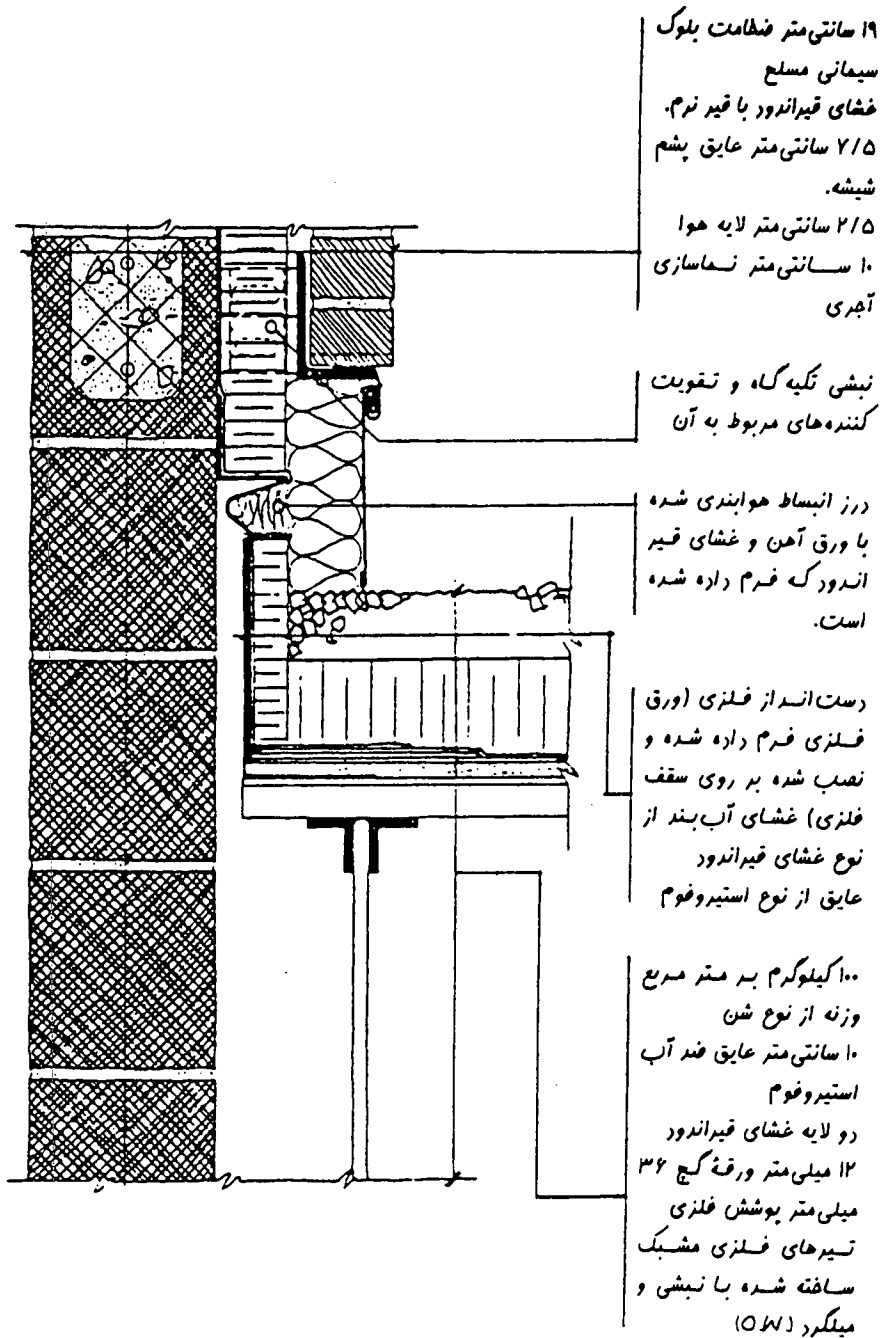 ۱۹ سانتی‌متر ضخامت بلوک
سیمانی مسلح
غشای قیراندود با قیر نرم.
۷/۵ سانتی‌متر عایق پشم
شیشه.
۲/۵ سانتی‌متر لایه هوا
۱۰ سانتی‌متر نماسازی
آجری
نبشی تکیه‌گاه و تقویت
کننده‌های مربوط به آن
درز انبساط هوابندی شده
با ورق آهن و غشای قیر
اندود که فرم داده شده
است.
دست‌انداز فلزی (ورق
فلزی فرم داده شده و
نصب شده بر روی سقف
فلزی) غشای آب‌بند از
نوع غشای قیراندود
عایق از نوع استیروفوم
۱۰۰ کیلوگرم بر متر مربع
وزنه از نوع شن
۱۰ سانتی‌متر عایق ضد آب
استیروفوم
دو لایه غشای قیراندود
۱۲ میلی‌متر ورقهٔ گچ ۳۶
میلی‌متر پوشش فلزی
تیرهای فلزی مشبک
ساخته شده با نبشی و
میلگرد (OWJ)